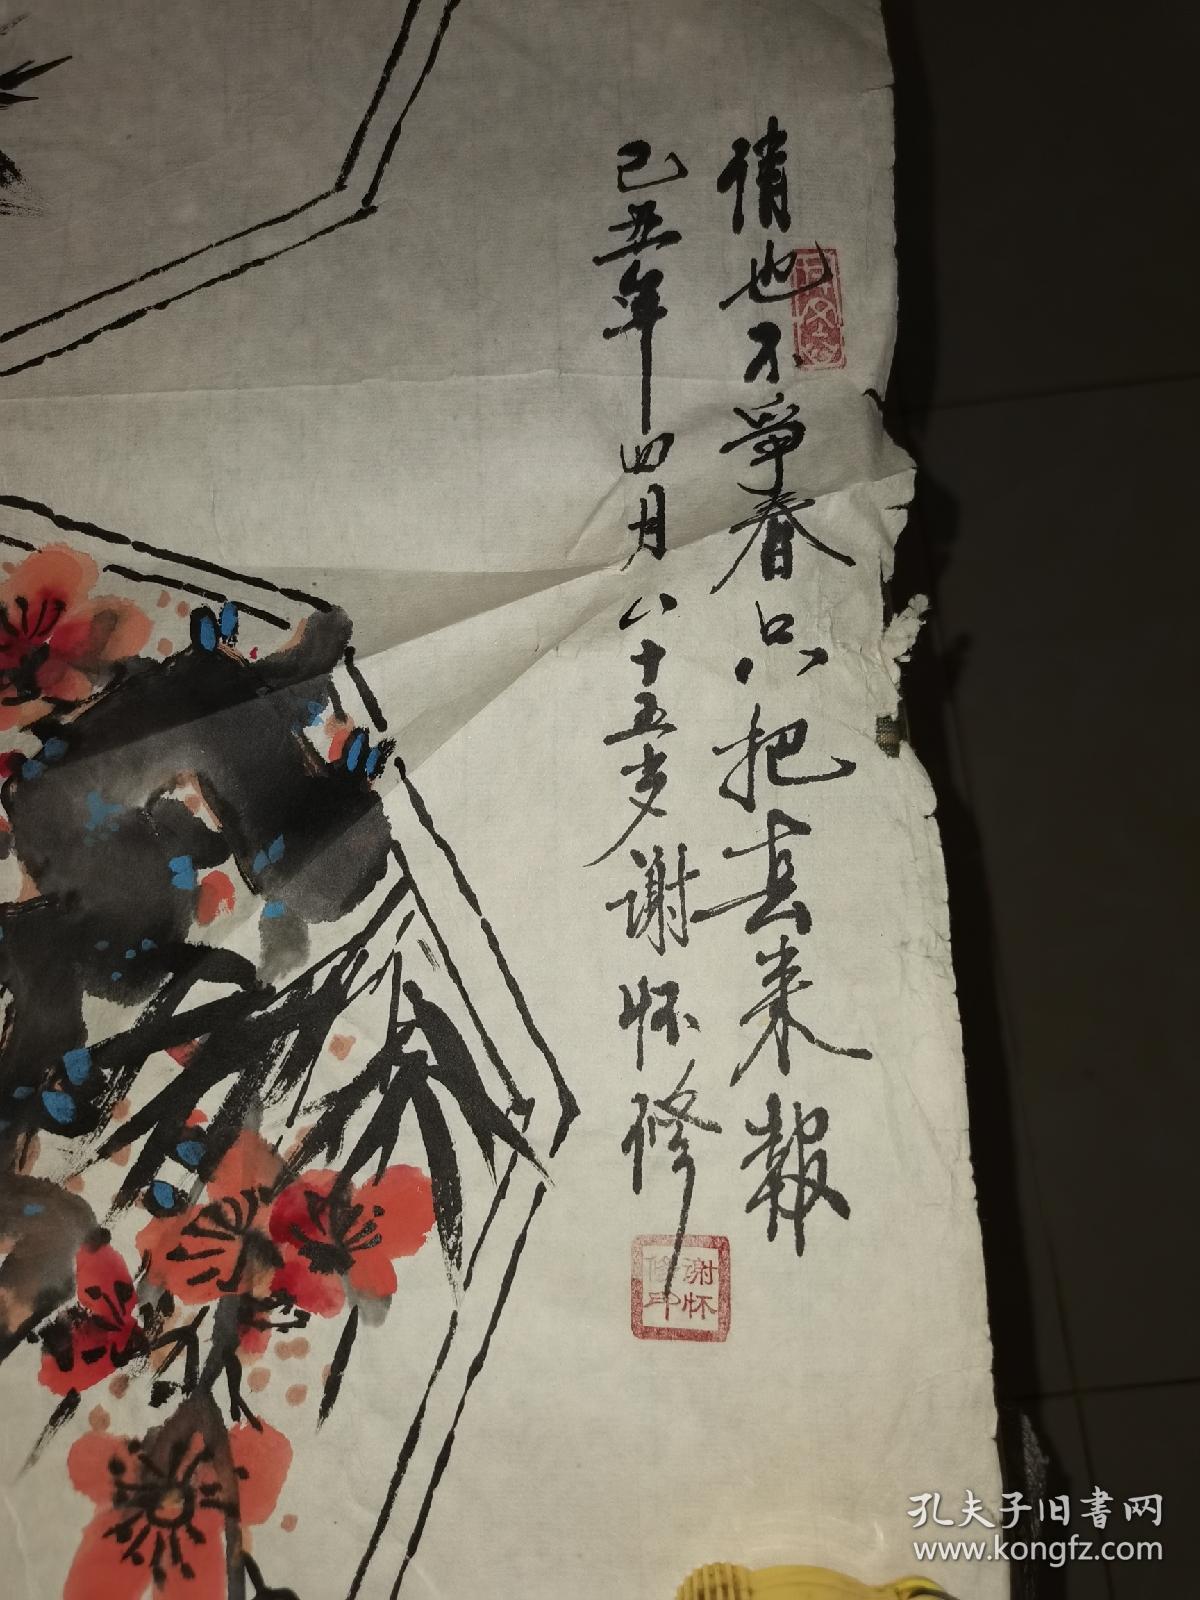 俏也不争春只把春来報
己丑年四月八十五岁谢怀修
谢怀
修印
孔夫子旧書网
www.kongfz.com